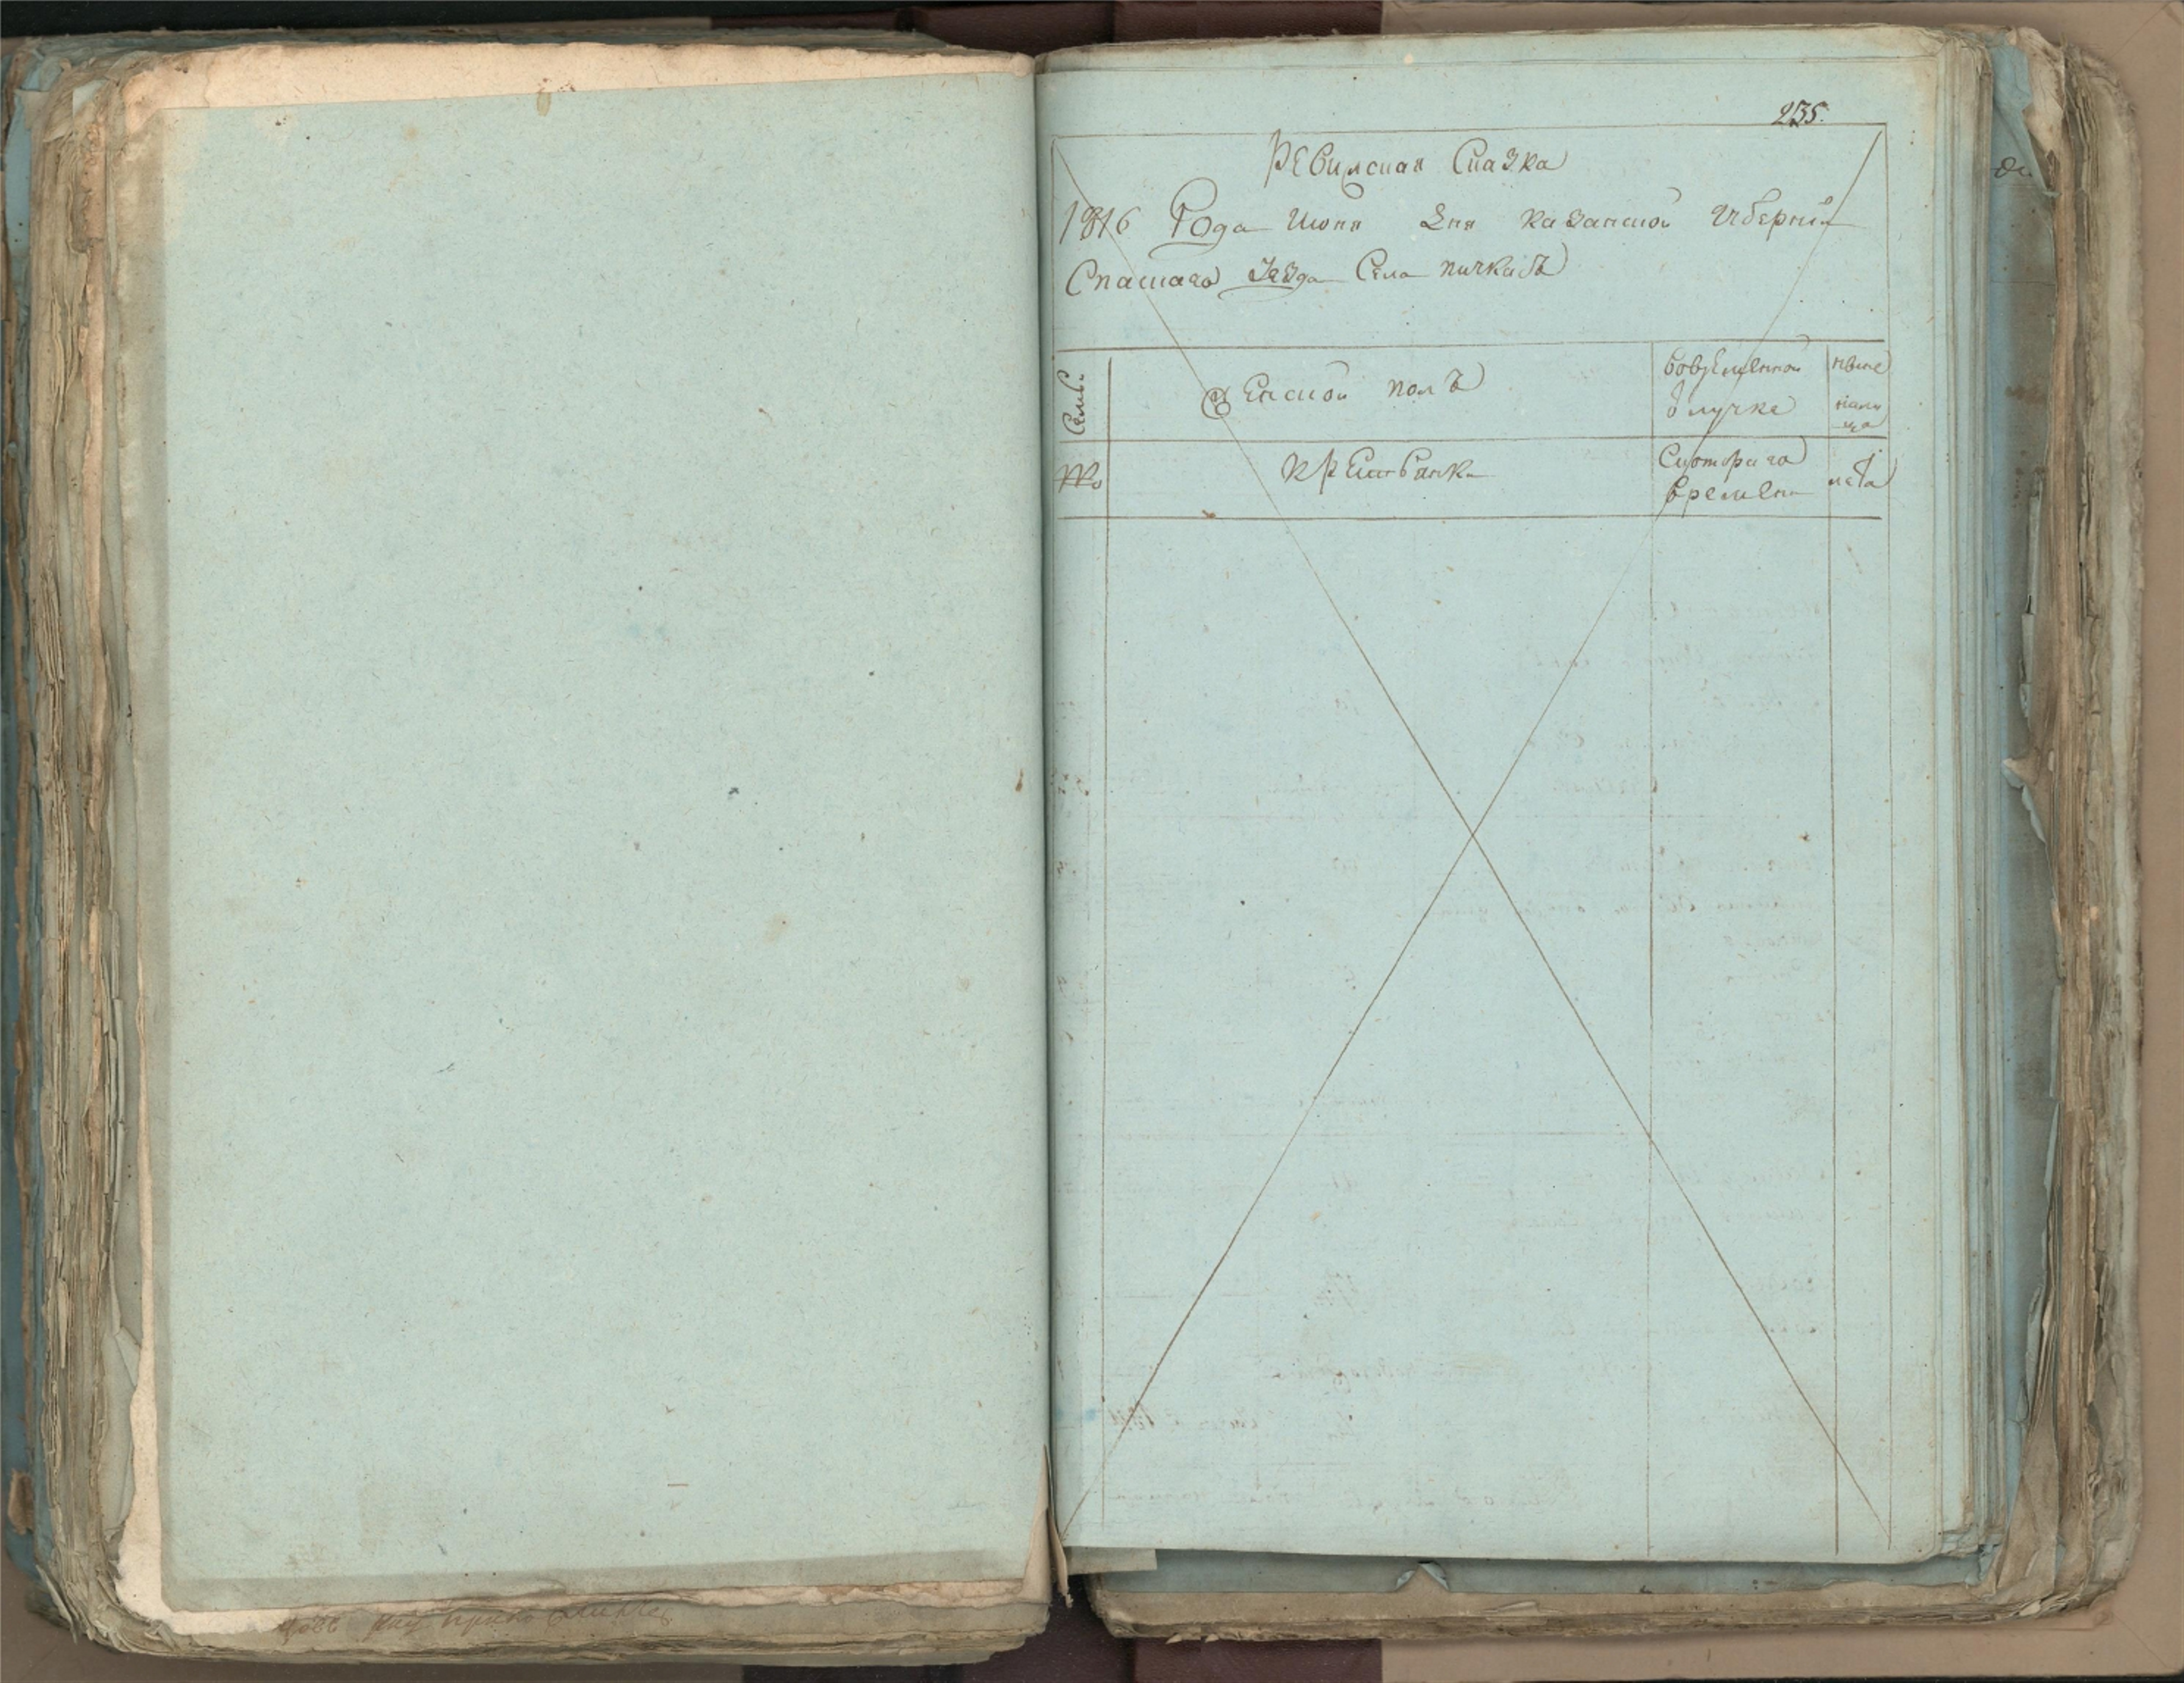 235.
Ревизская Сказка
1816 Года Июня дня казанской губернии
Спаскаго уезда Села пичкасъ
Семьи
Женской полъ
во временной
отлучке
ныне
налицо
№
крестьянки
Скотораго
времени
лета